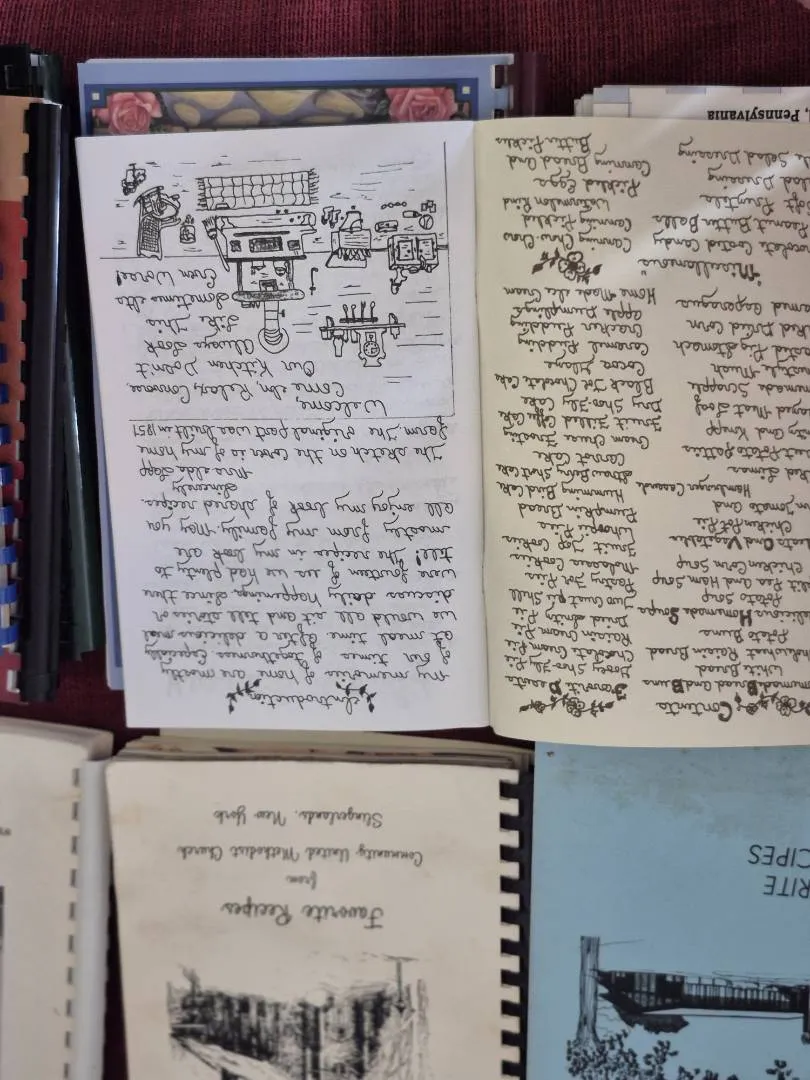 RITE
CIPES
Favorite Recipes
from
Community United Methodist Church
Slingerlands, New York
Contents
Bread and Buns
White Bread
Raisin Bread
Potato Buns
Homemade Soups
Potato Soup
Pea and Ham Soup
Chicken Corn Soup
And Vegetables
Chicken Pot Pie
Tomato and
Hamburger Casserole
Limas
Potato Patties
And Knepp
Meat Loaf
Scrapple
Mush
Pig Stomach
Dried Corn
Asparagus
Miscellaneous
Coated Candy
Peanut Butter Balls
Soft Pretzels
Dressing
Salad Dressing
Favorite Desserts
Gooey Shoo-Fly Pie
Chocolate Cream Pie
Raisin Cream Pie
Dried Pie
Pie Crust Shell
Pastry For Pies
Molasses Cookies
Fruit Top Cookies
Whoopie Pies
Pumpkin Bread
Humming Bird Cake
Strawberry Short Cake
Carrot Cake
Cream Cheese Frosting
Fruit Filled Coffee Cake
Dry Shoo-Fly Cake
Black Joe Chocolate Cake
Cocoa Glaze
Caramel Pudding
Cracker Pudding
Apple Dumplings
Home Made Ice Cream
Canning Chow Chow
Canning Pickled
Watermelon Rind
Pickled Eggs
Canning Bread and
Butter Pickles
Introduction
My memories of home are mostly
of our times of togetherness especially
at meal time. After a delicious meal
we would all sit and tell stories or
discuss daily happenings. Since there
were fourteen of us we had plenty to
tell! The recipes in my book are
mostly from my family. May you
all enjoy my book of shared recipes.
Sincerely,
Mrs Alda Lapp
The sketch on the cover is of my home
farm. The original part was built in 1851
Welcome,
Come in, Relax, Converse,
Our Kitchen Don't
Always Look
Like This
Sometimes it's
Even Worse!
Pennsylvania